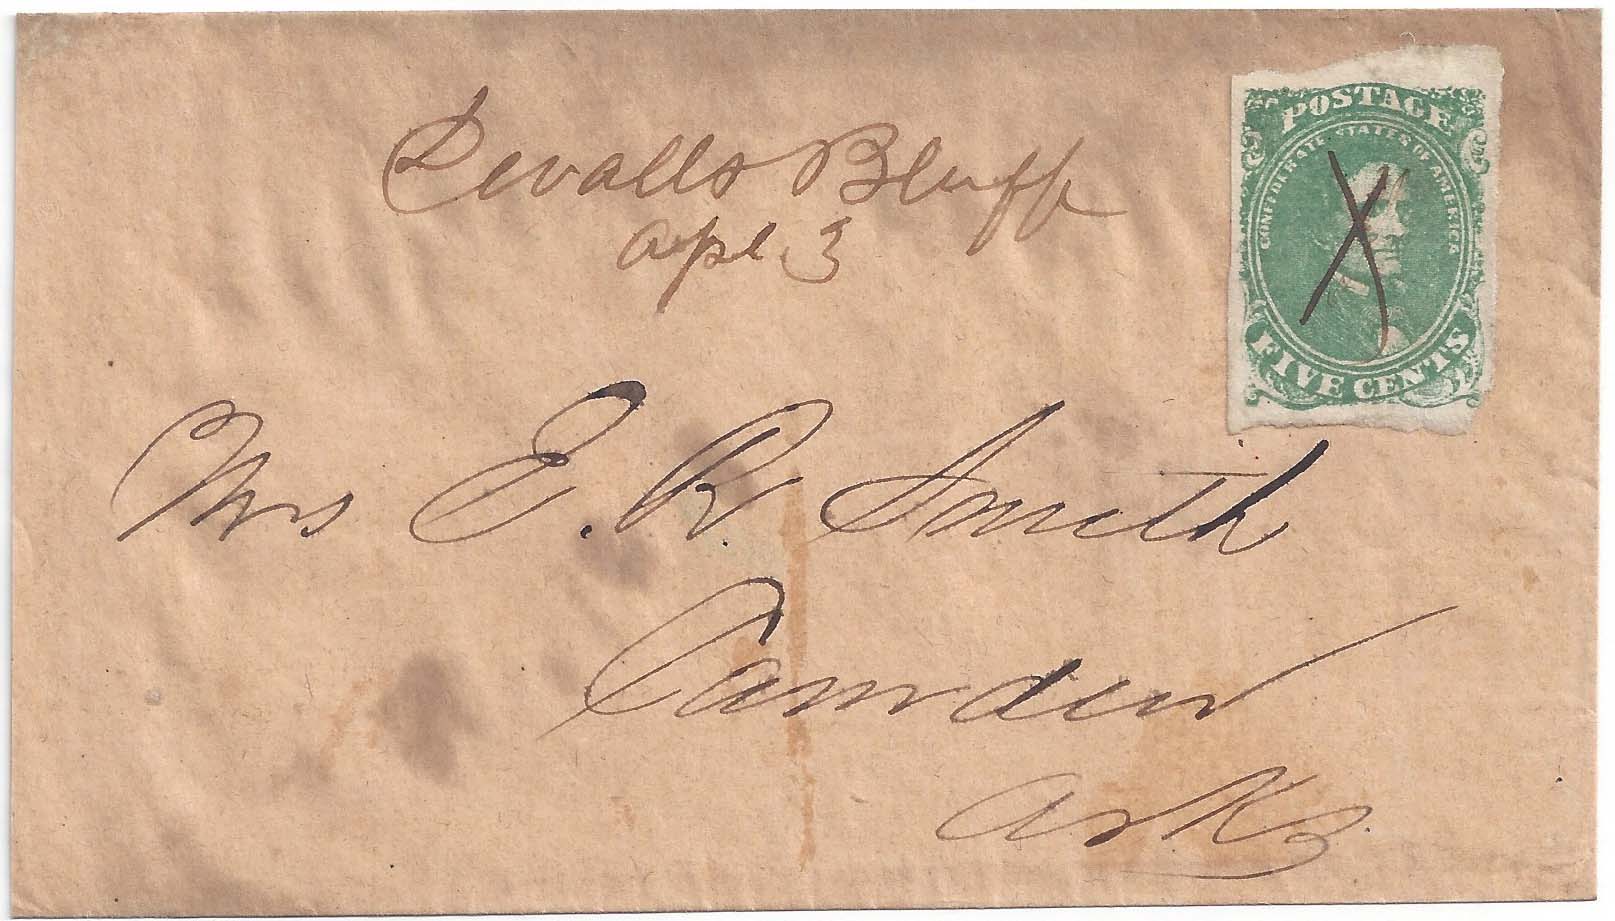 Devalls Bluff
Apl 3
POSTAGE
CONFEDERATE STATES OF AMERICA
FIVE CENTS
Mrs E. R. Smith
Camden
Arks